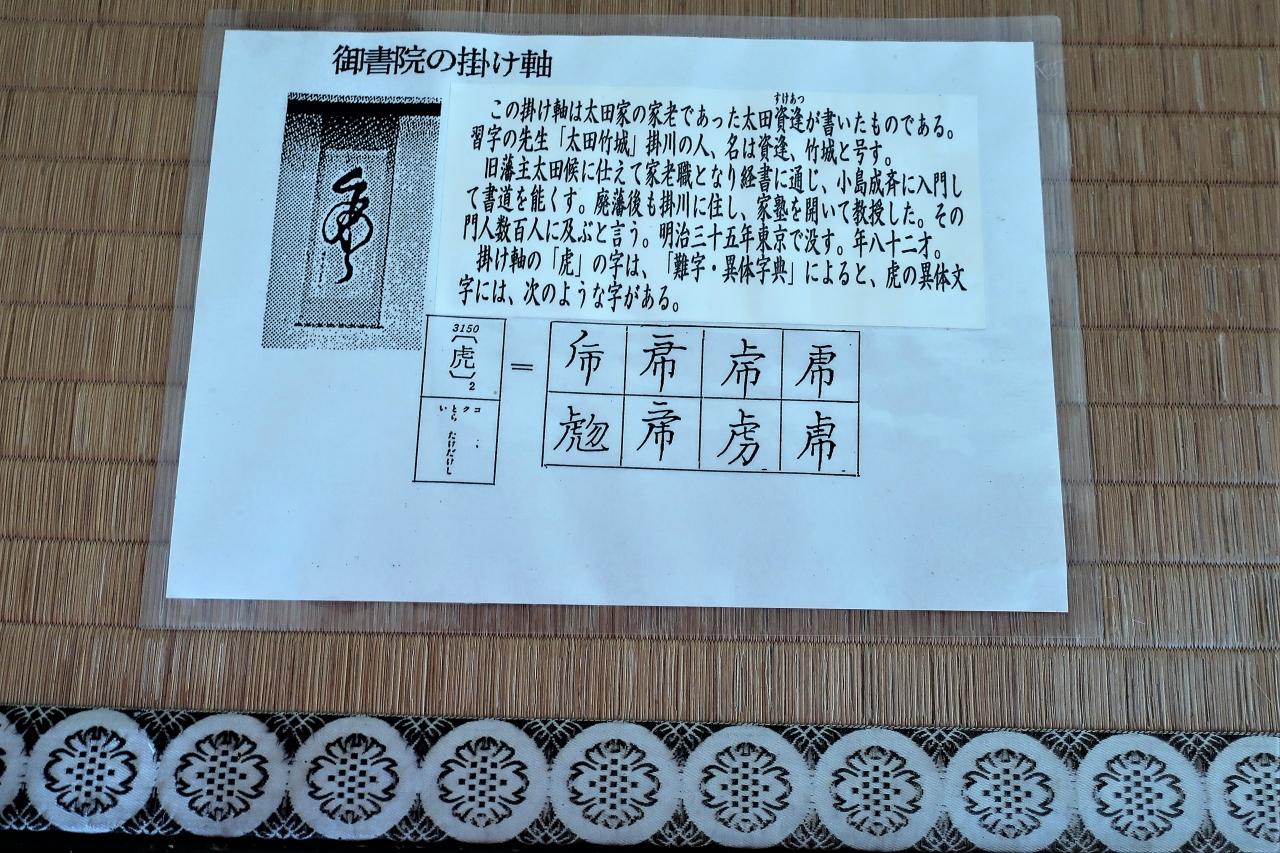 御書院の掛け軸
すけあつ
この掛け軸は太田家の家老であった太田資逢が書いたものである。
習字の先生「太田竹城」掛川の人、名は資逢、竹城と号す。
旧藩主太田候に仕えて家老職となり経書に通じ、小島成斉に入門し
て書道を能くす。廃藩後も掛川に住し、家塾を開いて教授した。その
門人数百人に及ぶと言う。明治三十五年東京で没す。年八十二才。
掛け軸の「虎」の字は、「難字・異体字典」によると、虎の異体文
字には、次のような字がある。
3150
〔虎〕2
=
コク
とら
たけだけし